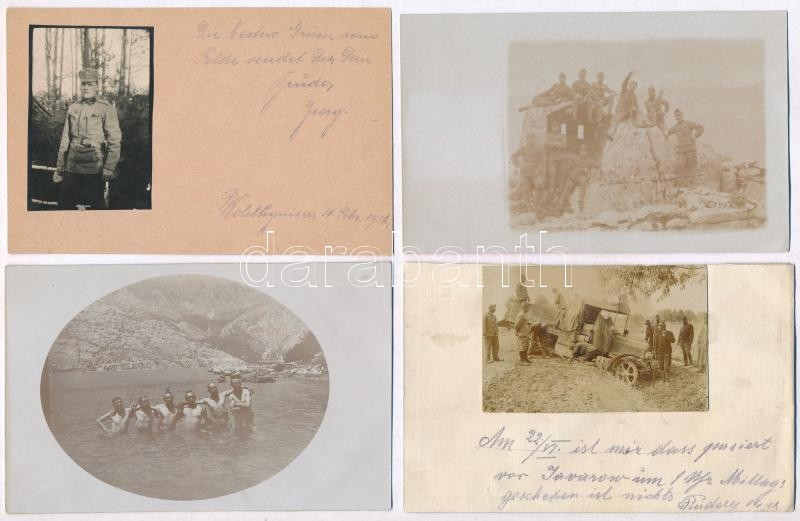 Die besten Grüsse vom
Felde sendet Dir Dein
Bruder
Georg.
Wolhynien, 11. Febr. 1916.
darabanth
Am 22/VI. ist mir dass pasiert
vor Javarow um 1 Uhr Mittags
geschehen ist nichts
Rudolf